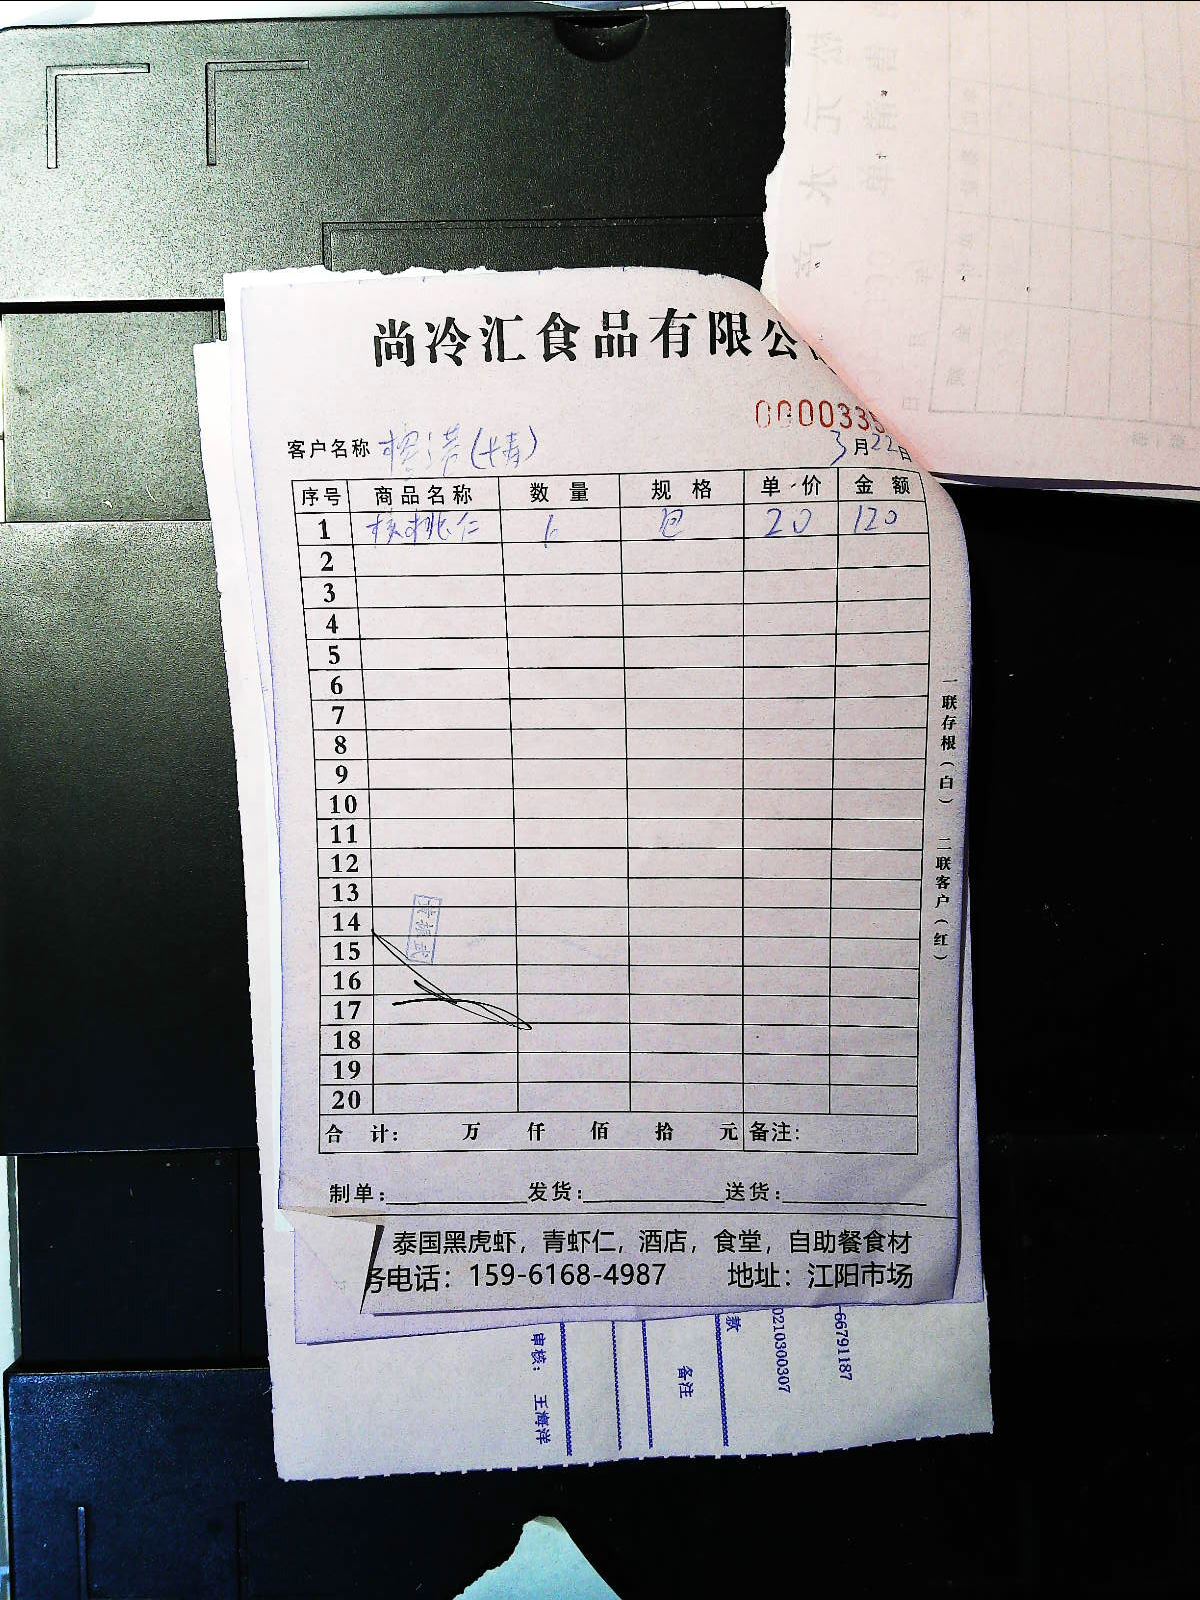 尚冷汇食品有限公
0000335
客户名称 (大青) 3月22日
序号 商品名称 数量 规格 单价 金额
1 核桃仁 6 包 20 120
2
3
4
5
6
7
8
9
10
11
12
13
14
15
16
17
18
19
20
合计: 万 仟 佰 拾 元 备注:
制单: 发货: 送货:
泰国黑虎虾，青虾仁，酒店，食堂，自助餐食材
务电话：159-6168-4987 地址：江阳市场
一联存根(白) 二联客户(红)
审核: 王海洋
备注
款
0210300307
-66791187